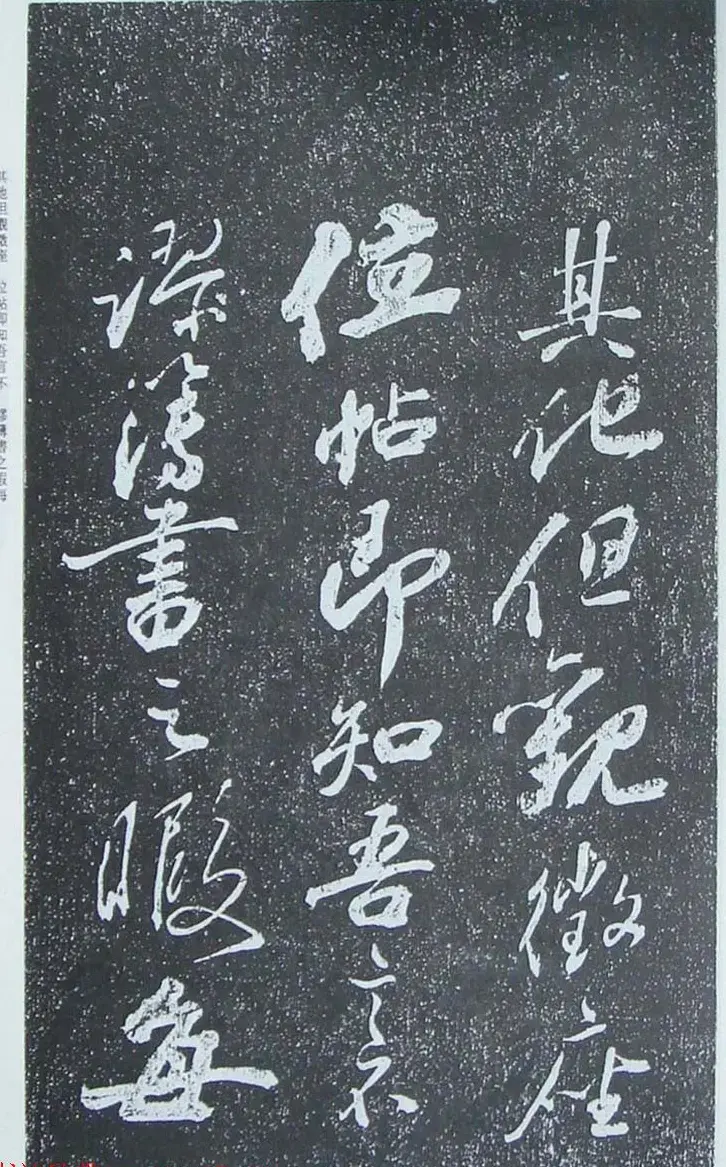 其他但觀徵座
位帖即知吾言不
謬簿書之暇每
其他但觀徵座 位帖即知吾言不 謬簿書之暇每